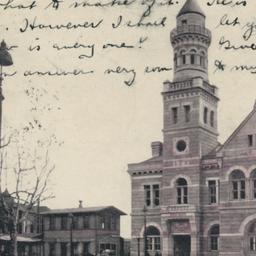 what to make of it. He is
. However I shall let yo
w is every one? Give
an answer very soon to m